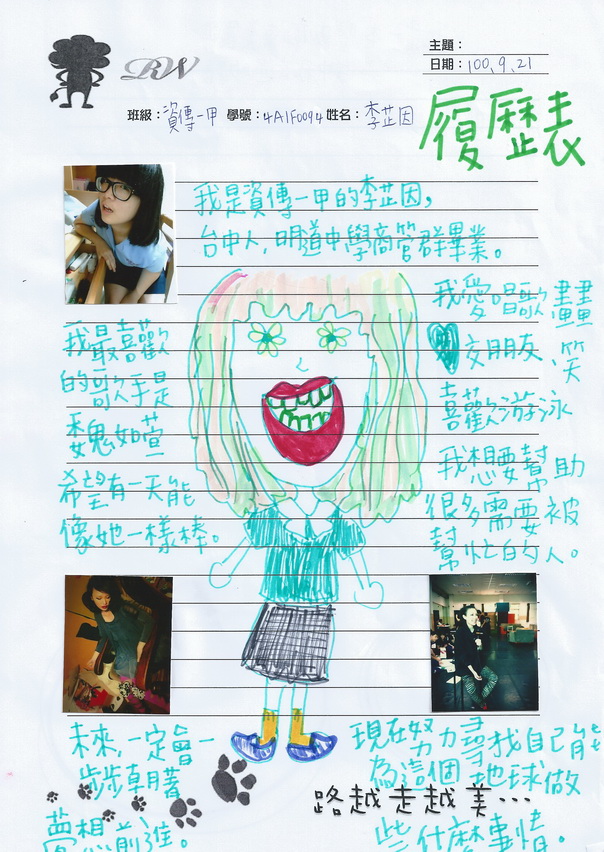 RW
主題：
日期：100.9.21
班級：資傳一甲 學號：4A1F0094 姓名：李芷因
履歷表
我是資傳一甲的李芷因，
台中人，明道中學商管群畢業。
我最喜歡
的歌手是
魏如萱
希望有一天能
像她一樣棒。
我愛唱歌 畫畫
交朋友、笑
喜歡游泳
我想要幫助
很多需要被
幫忙的人。
未來，一定會一
步步朝著
夢想前進。
現在努力尋找自己能
為這個地球做
些什麼事情。
路越走越美...